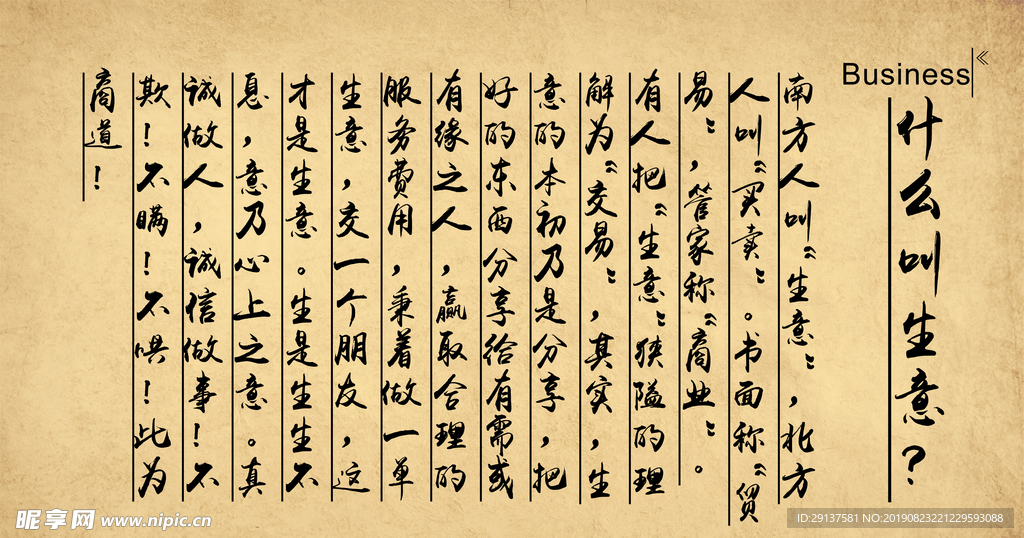 Business
什么叫生意？
南方人叫“生意”，北方
人叫“买卖”。书面称“贸
易”，管家称“商业”。
有人把“生意”狭隘的理
解为“交易”，其实，生
意的本初乃是分享，把
好的东西分享给有需或
有缘之人，赢取合理的
服务费用，秉着做一单
生意，交一个朋友，这
才是生意。生是生生不
息，意乃心上之意。真
诚做人，诚信做事！不
欺！不瞒！不哄！此为
商道！
昵享网 www.nipic.cn
ID:29137581 NO:20190823221229593088